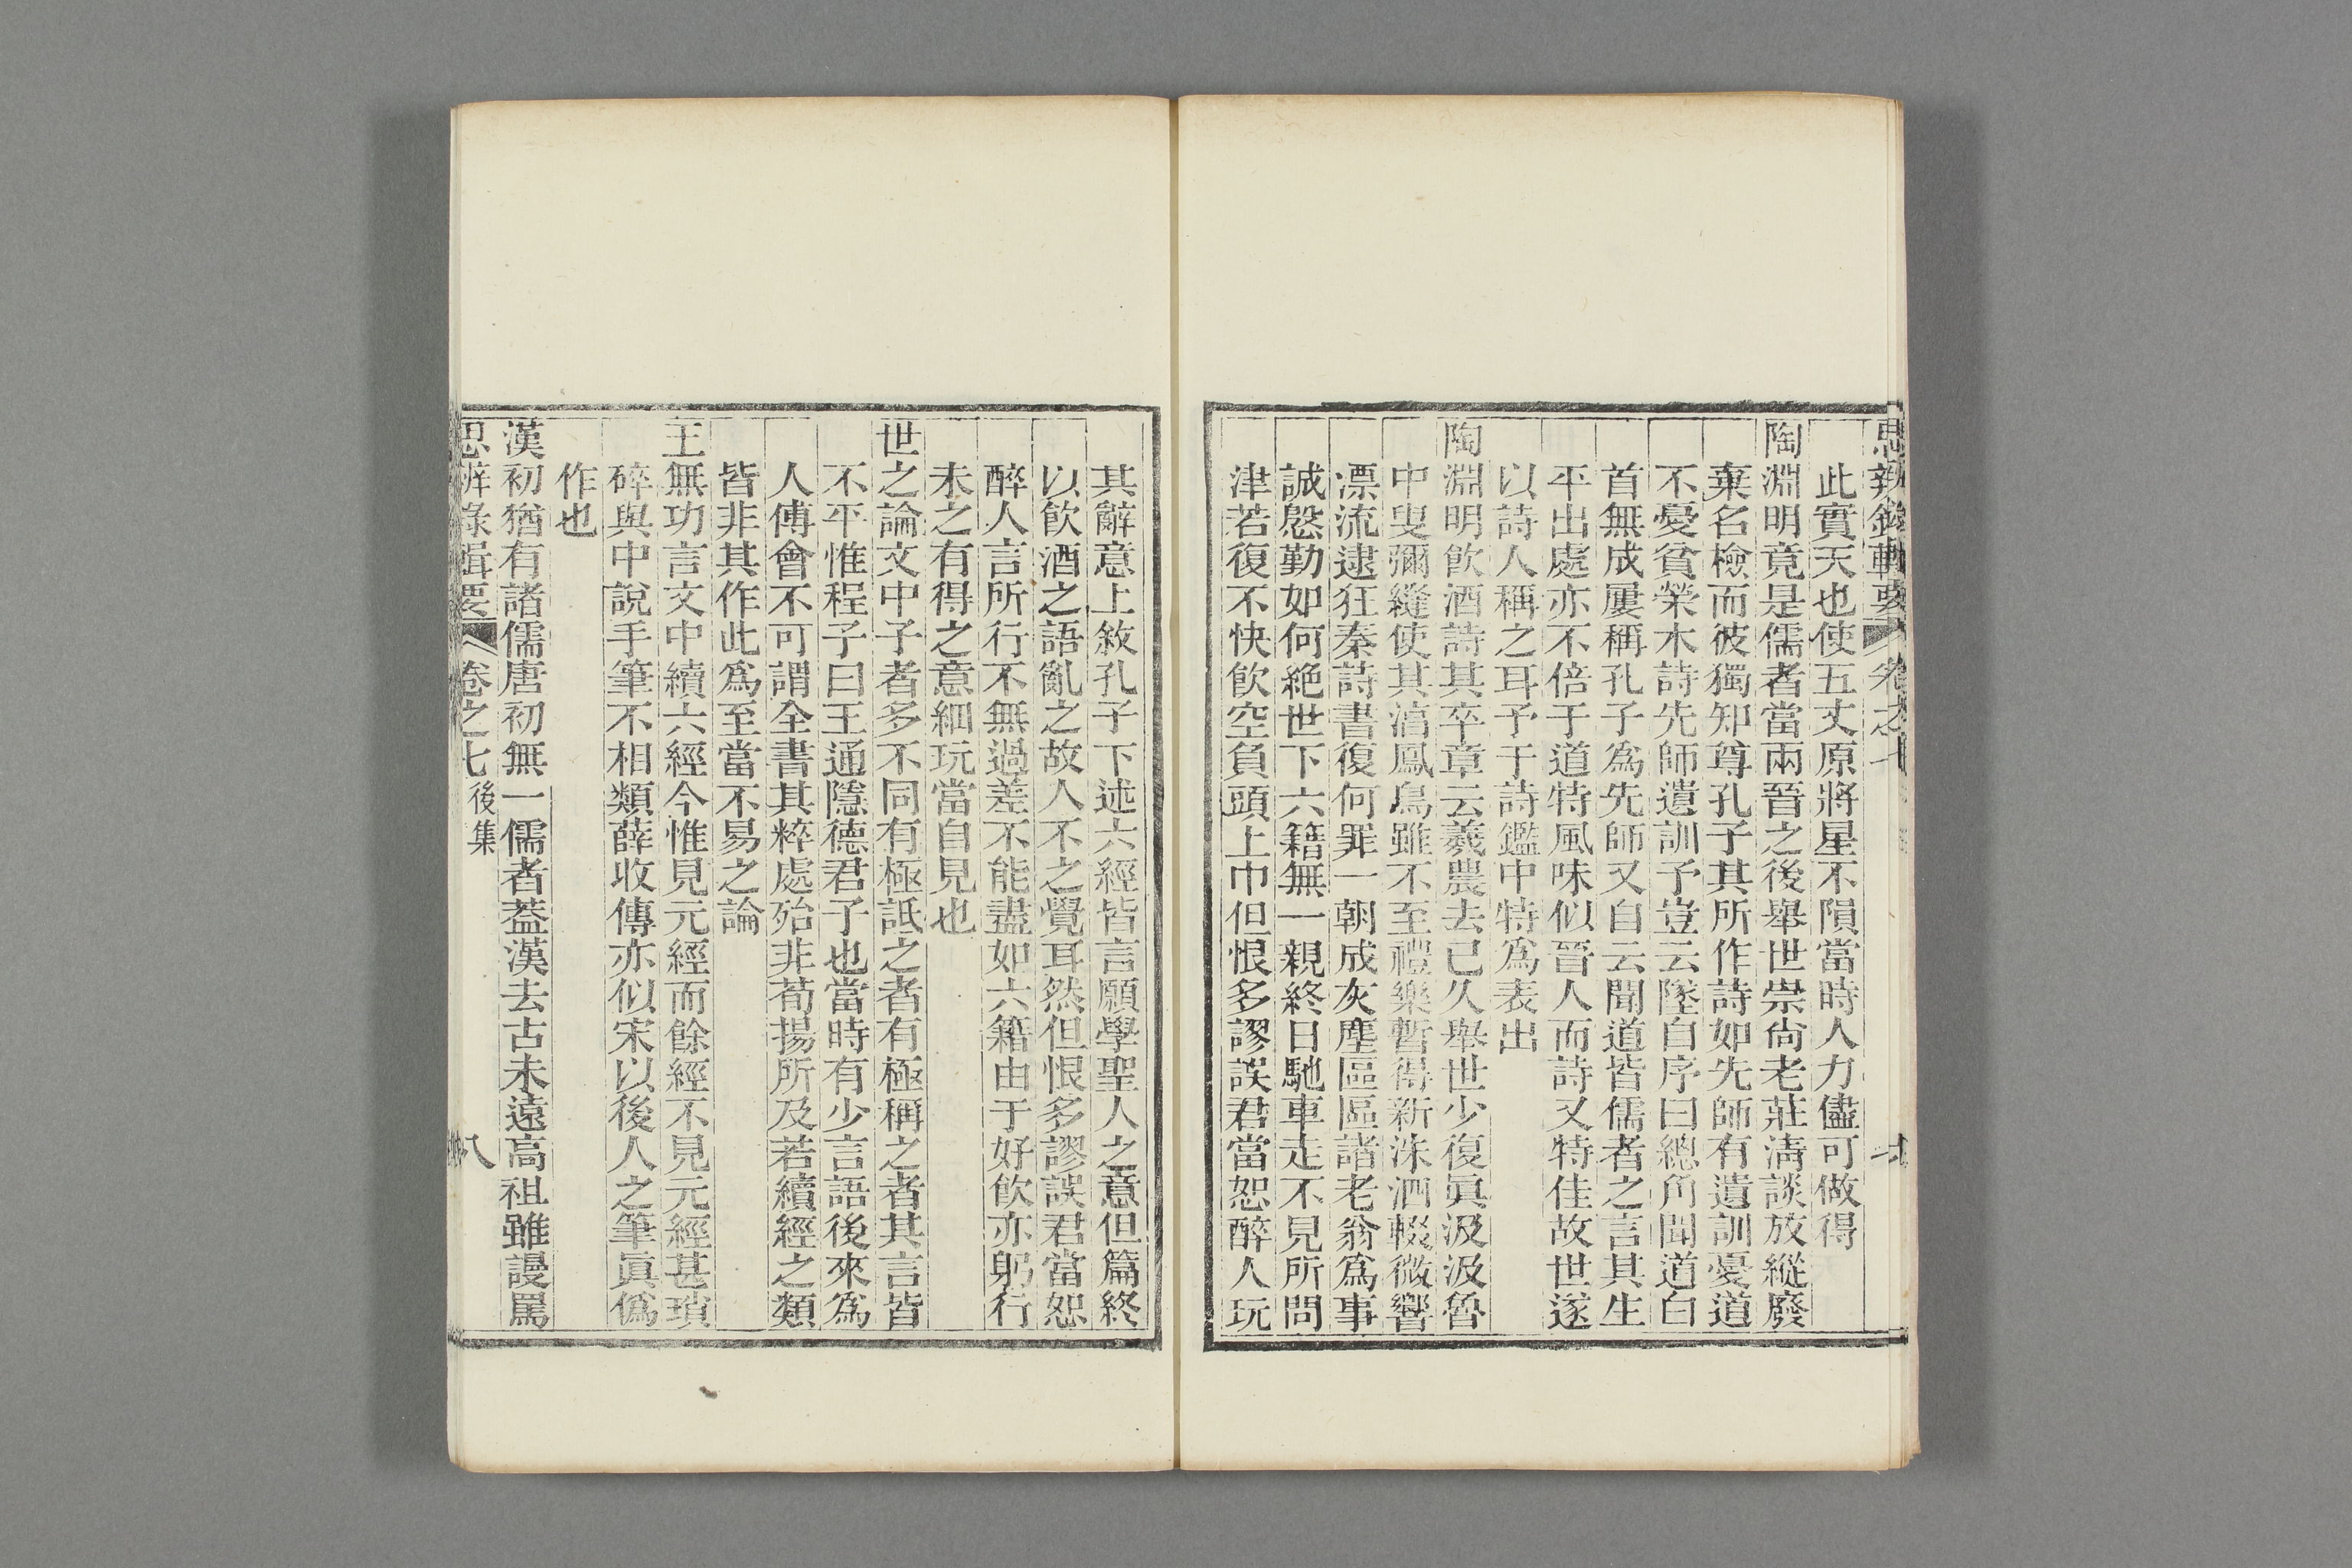 思辨錄輯要 卷之七 七
此實天也使五丈原將星不隕當時人力儘可做得
陶淵明竟是儒者當兩晉之後舉世崇尚老莊淸談放縱廢
棄名檢而彼獨知尊孔子其所作詩如先師有遺訓憂道
不憂貧榮木詩先師遺訓予豈云墜自序曰總角聞道白
首無成屢稱孔子爲先師又自云聞道皆儒者之言其生
平出處亦不倍于道特風味似晉人而詩又特佳故世遂
以詩人稱之耳予于詩鑑中特爲表出
陶淵明飮酒詩其卒章云羲農去已久舉世少復眞汲汲魯
中叟彌縫使其淳鳳鳥雖不至禮樂暫得新洙泗輟微響
漂流逮狂秦詩書復何罪一朝成灰塵區區諸老翁爲事
誠慇勤如何絶世下六籍無一親終日馳車走不見所問
津若復不快飮空負頭上巾但恨多謬誤君當恕醉人玩
其辭意上敘孔子下述六經皆言願學聖人之意但篇終
以飮酒之語亂之故人不之覺耳然但恨多謬誤君當恕
醉人言所行不無過差不能盡如六籍由于好飮亦躬行
未之有得之意細玩當自見也
世之論文中子者多不同有極詆之者有極稱之者其言皆
不平惟程子曰王通隱德君子也當時有少言語後來爲
人傅會不可謂全書其粹處殆非荀揚所及若續經之類
皆非其作此爲至當不易之論
王無功言文中續六經今惟見元經而餘經不見元經甚瑣
碎與中說手筆不相類薛收傳亦似宋以後人之筆眞僞
作也
漢初猶有諸儒唐初無一儒者葢漢去古未遠高祖雖謾罵
思辨錄輯要 卷之七 後集 八